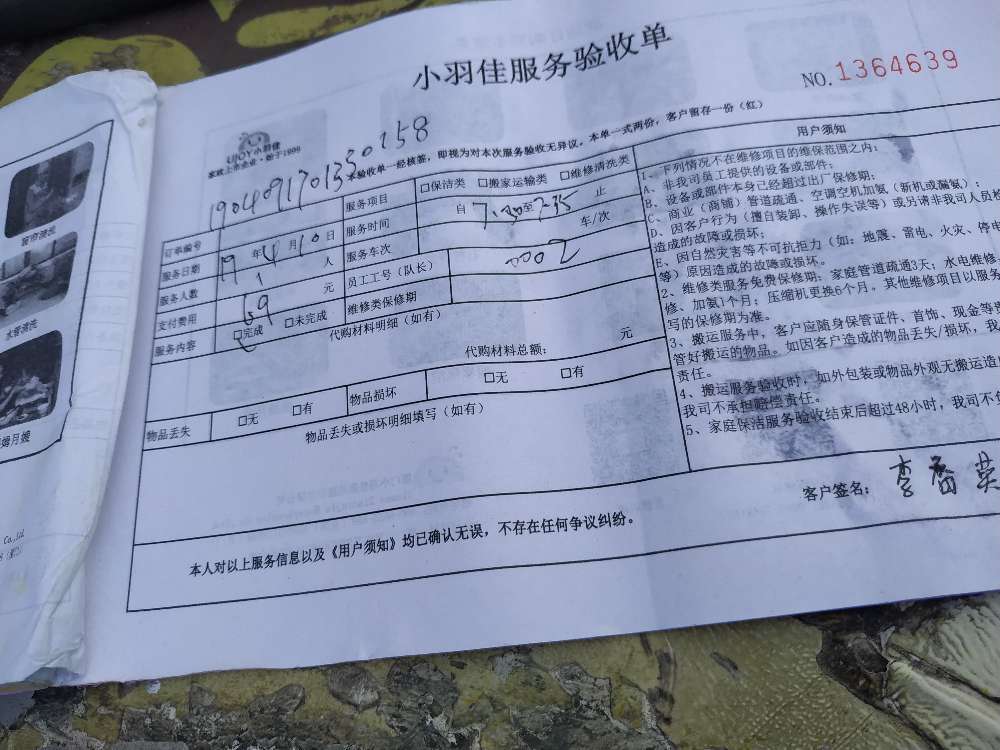 小羽佳服务验收单
NO.1364639
UJOY小羽佳
家政上市企业·始于1999
本验收单一经核签，即视为对本次服务验收无异议。本单一式两份，客户留存一份（红）
订单编号 1904091701330158
服务项目 □保洁类 □搬家运输类 □维修清洗类
服务日期 19年4月10日
服务时间 自7.30至7.35止
服务人数 1人
服务车次 车/次
支付费用 69元
员工工号（队长） 0002
服务内容 □完成 □未完成
维修类保修期
代购材料明细（如有）
代购材料总额： 元
物品丢失 □无 □有
物品损坏 □无 □有
物品丢失或损坏明细填写（如有）
用户须知
1、下列情况不在维修项目的维保范围之内：
A、非我司员工提供的设备或部件；
B、设备或部件本身已经超过出厂保修期；
C、商业（商铺）管道疏通、空调空机加氨（新机或漏氨）；
D、因客户行为（擅自装卸、操作失误等）或另请非我司人员检
造成的故障或损坏；
E、因自然灾害等不可抗拒力（如：地震、雷电、火灾、停电
等）原因造成的故障或损坏。
2、维修类服务免费保修期：家庭管道疏通3天；水电维修
修、加氨1个月；压缩机更换6个月，其他维修项目以服务
写的保修期为准。
3、搬运服务中，客户应随身保管证件、首饰、现金等贵
管好搬运的物品。如因客户造成的物品丢失/损坏，我
责任。
4、搬运服务验收时，如外包装或物品外观无搬运造
我司不承担赔偿责任。
5、家庭保洁服务验收结束后超过48小时，我司不
客户签名：李香英
本人对以上服务信息以及《用户须知》均已确认无误，不存在任何争议纠纷。
窗帘清洗
水管清洗
Co.,Ltd